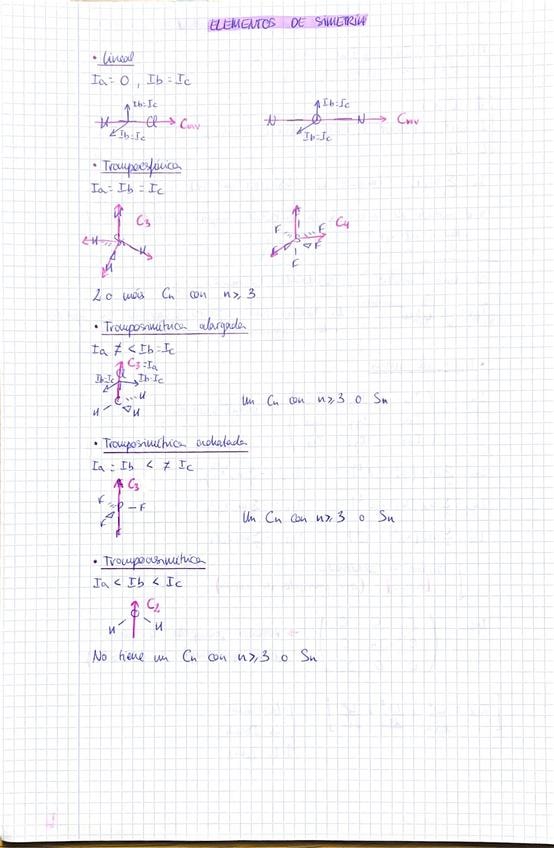 ELEMENTOS DE SIMETRÍA
• Lineal
Ia = 0 , Ib = Ic
Ib=Ic
H Cl C∞v
Ib=Ic
Ib=Ic
N N C∞v
Ib=Ic
• Trompoesférica
Ia = Ib = Ic
H C3
H H
H
C4
F F
F F
F
2 o más Cn con n ≥ 3
• Tromposimétrica alargada
Ia ≠ < Ib = Ic
C3 = Ia
Cl
Ib=Ic Ib=Ic
C H
H H
Un Cn con n ≥ 3 o Sn
• Tromposimétrica achatada
Ia = Ib < ≠ Ic
C3
F
P - F
F
F
Un Cn con n ≥ 3 o Sn
• Trompoasimétrica
Ia < Ib < Ic
C2
O
H H
No tiene un Cn con n ≥ 3 o Sn